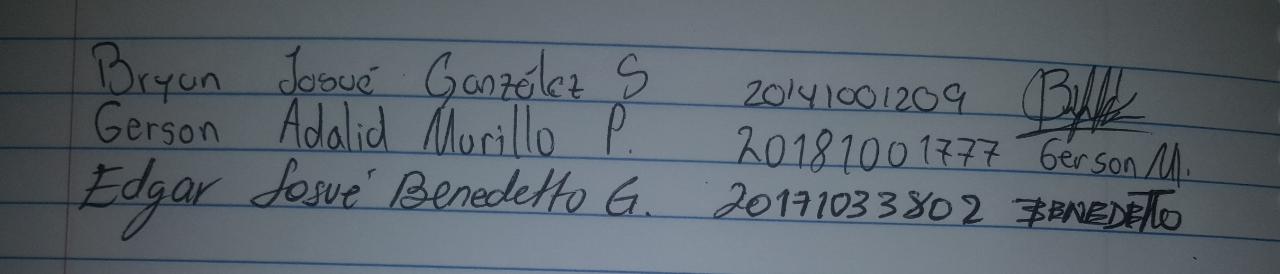 Bryan Josué Gonzélez S 20141001209
Gerson Adalid Murillo P. 20181001777 Gerson M.
Edgar Josué Benedetto G. 20171033802 BENEDETTO